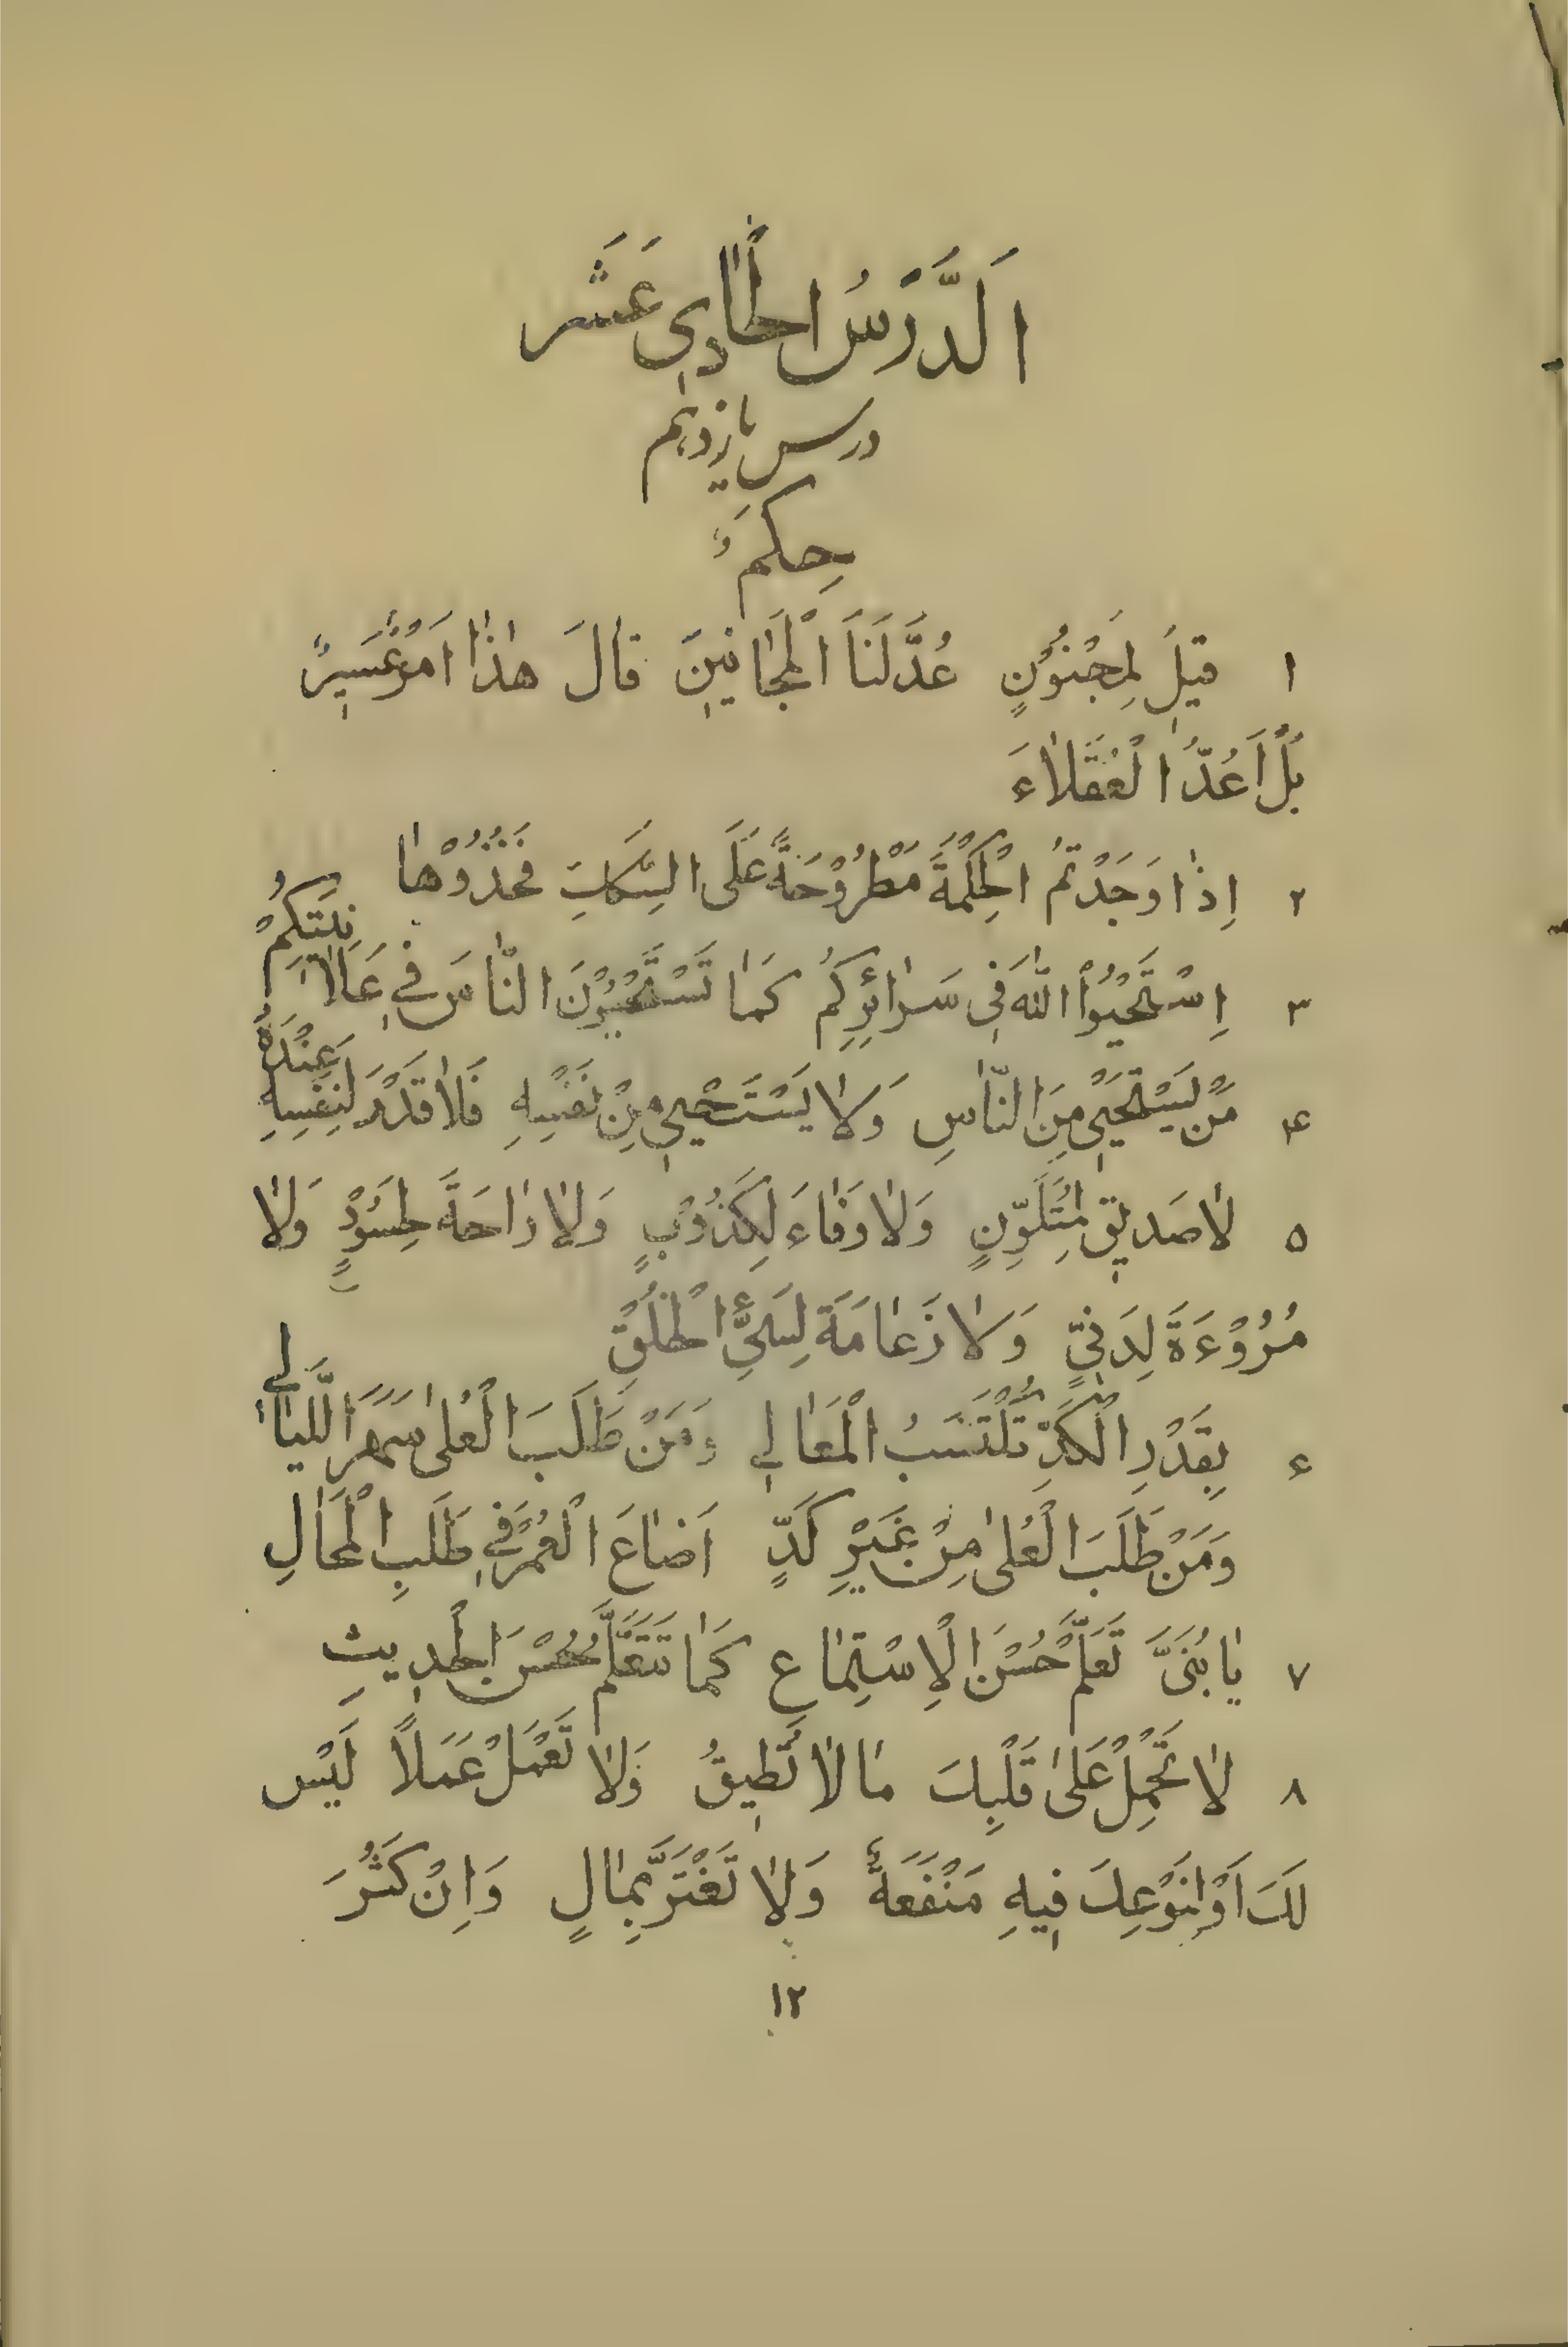 اَلدَّرْسُ الْحٰادِي عَشَر
درس یازدهم
حِكَمٌ
١ قِيلَ لِمَجْنُوْنٍ عُدَّ لَنَا الْمَجٰانِينَ قٰالَ هٰذٰا اَمْرٌ عَسِيرٌ
بَلْ اَعُدُّ الْعُقَلٰاءَ
٢ اِذٰا وَجَدْتُمُ الْحِكْمَةَ مَطْرُوْحَةً عَلَى السِّكَكِ فَخُذُوْهٰا
٣ اِسْتَحْيُوْا اللّٰهَ فِى سَرٰائِرِكُمْ كَمٰا تَسْتَحْيُوْنَ النّٰاسَ فِي عَلٰانِيَتِكُمْ
۴ مَنْ يَسْتَحْيِي مِنَ النّٰاسِ وَلٰا يَسْتَحْيِي مِنْ نَفْسِهِ فَلٰا قَدْرَ لِنَفْسِهِ عِنْدَهُ
۵ لٰا صَدِيقَ لِمُتَلَوِّنٍ وَلٰا وَفٰاءَ لِكَذُوْبٍ وَلٰا رٰاحَةَ لِحَسُوْدٍ وَلٰا
مُرُوْءَةَ لِدَنِيٍّ وَلٰا زَعٰامَةَ لِسَيِّئِ الْخُلُقِ
۶ بِقَدْرِ الْكَدِّ تُكْتَسَبُ الْمَعٰالِي وَمَنْ طَلَبَ الْعُلىٰ سَهَرَ اللَّيٰالِي
وَمَنْ طَلَبَ الْعُلىٰ مِنْ غَيْرِ كَدٍّ اَضٰاعَ الْعُمْرَ فِي طَلَبِ الْمَحٰالِ
٧ يٰا بُنَىَّ تَعَلَّمْ حُسْنَ الْاِسْتِمٰاعِ كَمٰا تَتَعَلَّمُ حُسْنَ الْحَدِيثِ
٨ لٰا تَحْمِلْ عَلىٰ قَلْبِكَ مٰا لٰا تُطِيقُ وَلٰا تَعْمَلْ عَمَلاً لَيْسَ
لَكَ اَوْ لِنَوْعِكَ فِيهِ مَنْفَعَةٌ وَلٰا تَغْتَرَّ بِمٰالٍ وَاِنْ كَثُرَ
١٢